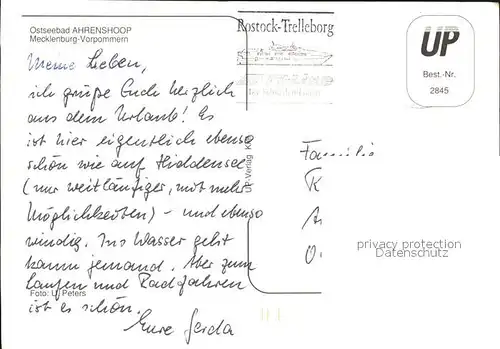 Ostseebad AHRENSHOOP
Mecklenburg-Vorpommern
Meine Lieben,
ich grüße Euch herzlich
aus dem Urlaub! Es
ist hier eigentlich ebenso
schön wie auf Hiddensee
(nur weitläufiger, mit mehr
Möglichkeiten) – und ebenso
windig. Ins Wasser geht
kaum jemand. Aber zum
Laufen und Radfahren
ist es schön.
Eure Gerda
Foto: U. Peters
UP-Verlag
Rostock-Trelleborg
UP
Best.-Nr.
2845
Familie
K
A
O
privacy protection
Datenschutz